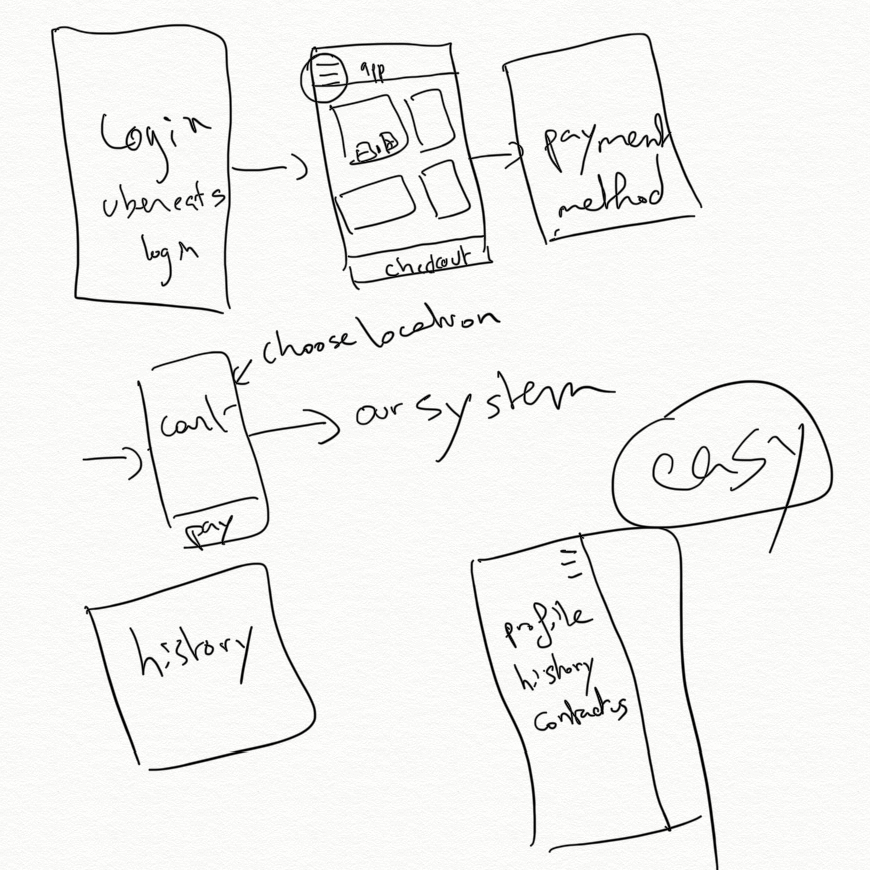 login
ubereats
login
app
checkout
payment
method
choose location
cart
pay
our system
easy
history
profile
history
contact us